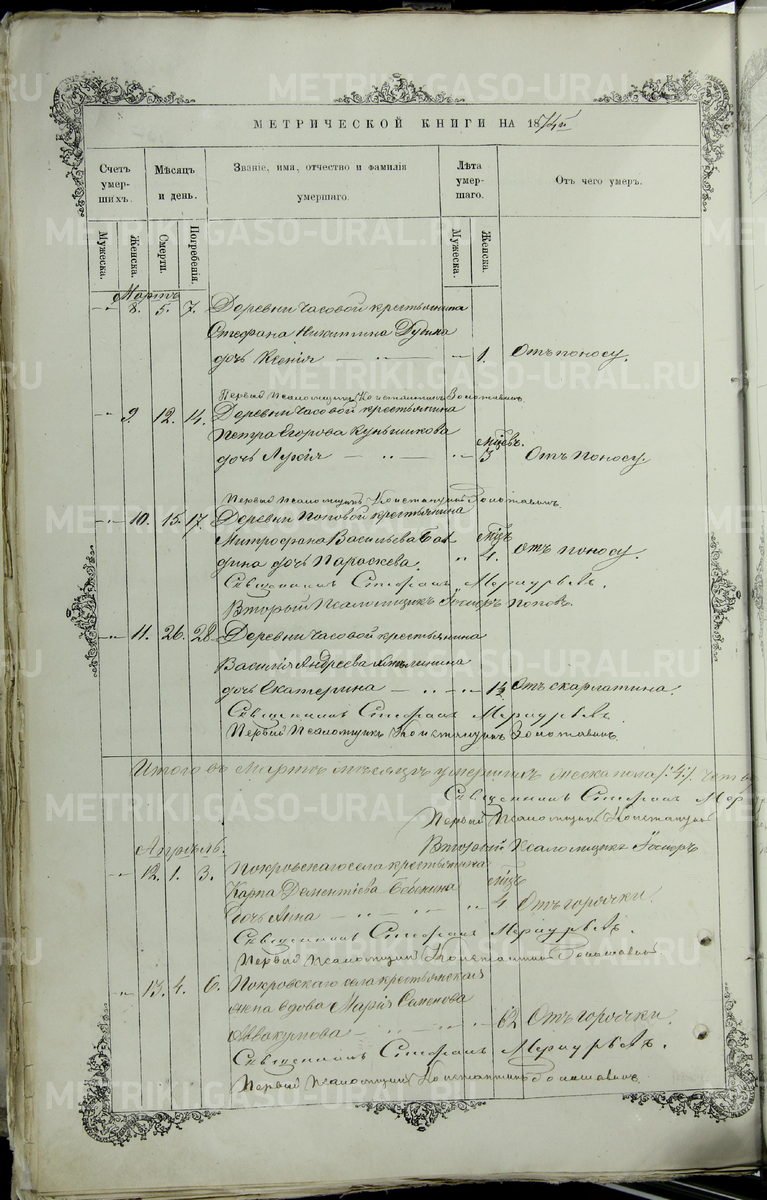 METRIKI.GASO-URAL.RU
МЕТРИЧЕСКОЙ КНИГИ НА 187
Счетъ умер- шихъ.
Мѣсяцъ и день.
Званіе, имя, отчество и фамилія умершаго.
Лѣта умер- шаго.
Отъ чего умеръ.
Мужеска.
Женска.
Смерти.
Погребенія.
Мужеска.
Женска.
Мартъ
8. 5. 7. Деревни Часовой крестьянина
Стефана Никитина
дочь Ксенія 1. Отъ поносу.
Первый Псаломщикъ Константинъ
9. 12. 14. Деревни Часовой крестьянина
Петра Егорова Куньшикова мѣсяцъ.
дочь 3 Отъ поносу.
Первый Псаломщикъ Константинъ
10. 15. 17. Деревни Поповой крестьянина
Митрофана Васильева мѣсяцъ
дочь Параскева. 4. Отъ поносу.
Священникъ Стефанъ Меркурьевъ.
Второй Псаломщикъ Поповъ.
11. 26. 28 Деревни Часовой крестьянина
Василія Андреева
дочь Екатерина 13 Отъ скарлатина.
Священникъ Стефанъ Меркурьевъ.
Первый Псаломщикъ Константинъ
Итого въ Мартѣ мѣсяцѣ умершихъ пола
Священникъ Стефанъ Мер
Первый Псаломщикъ Константинъ
Второй Псаломщикъ
Апрѣль.
12. 1. 3. Покровскаго села крестьянина
Карпа Дементіева мѣсяцъ
дочь Анна 4 Отъ горячки.
Священникъ Стефанъ Меркурьевъ.
Первый Псаломщикъ Константинъ
13. 4. 6. Покровскаго села крестьянская
жена вдова Марія Семенова
Аввакумова 62 Отъ горячки.
Священникъ Стефанъ Меркурьевъ.
Первый Псаломщикъ Константинъ